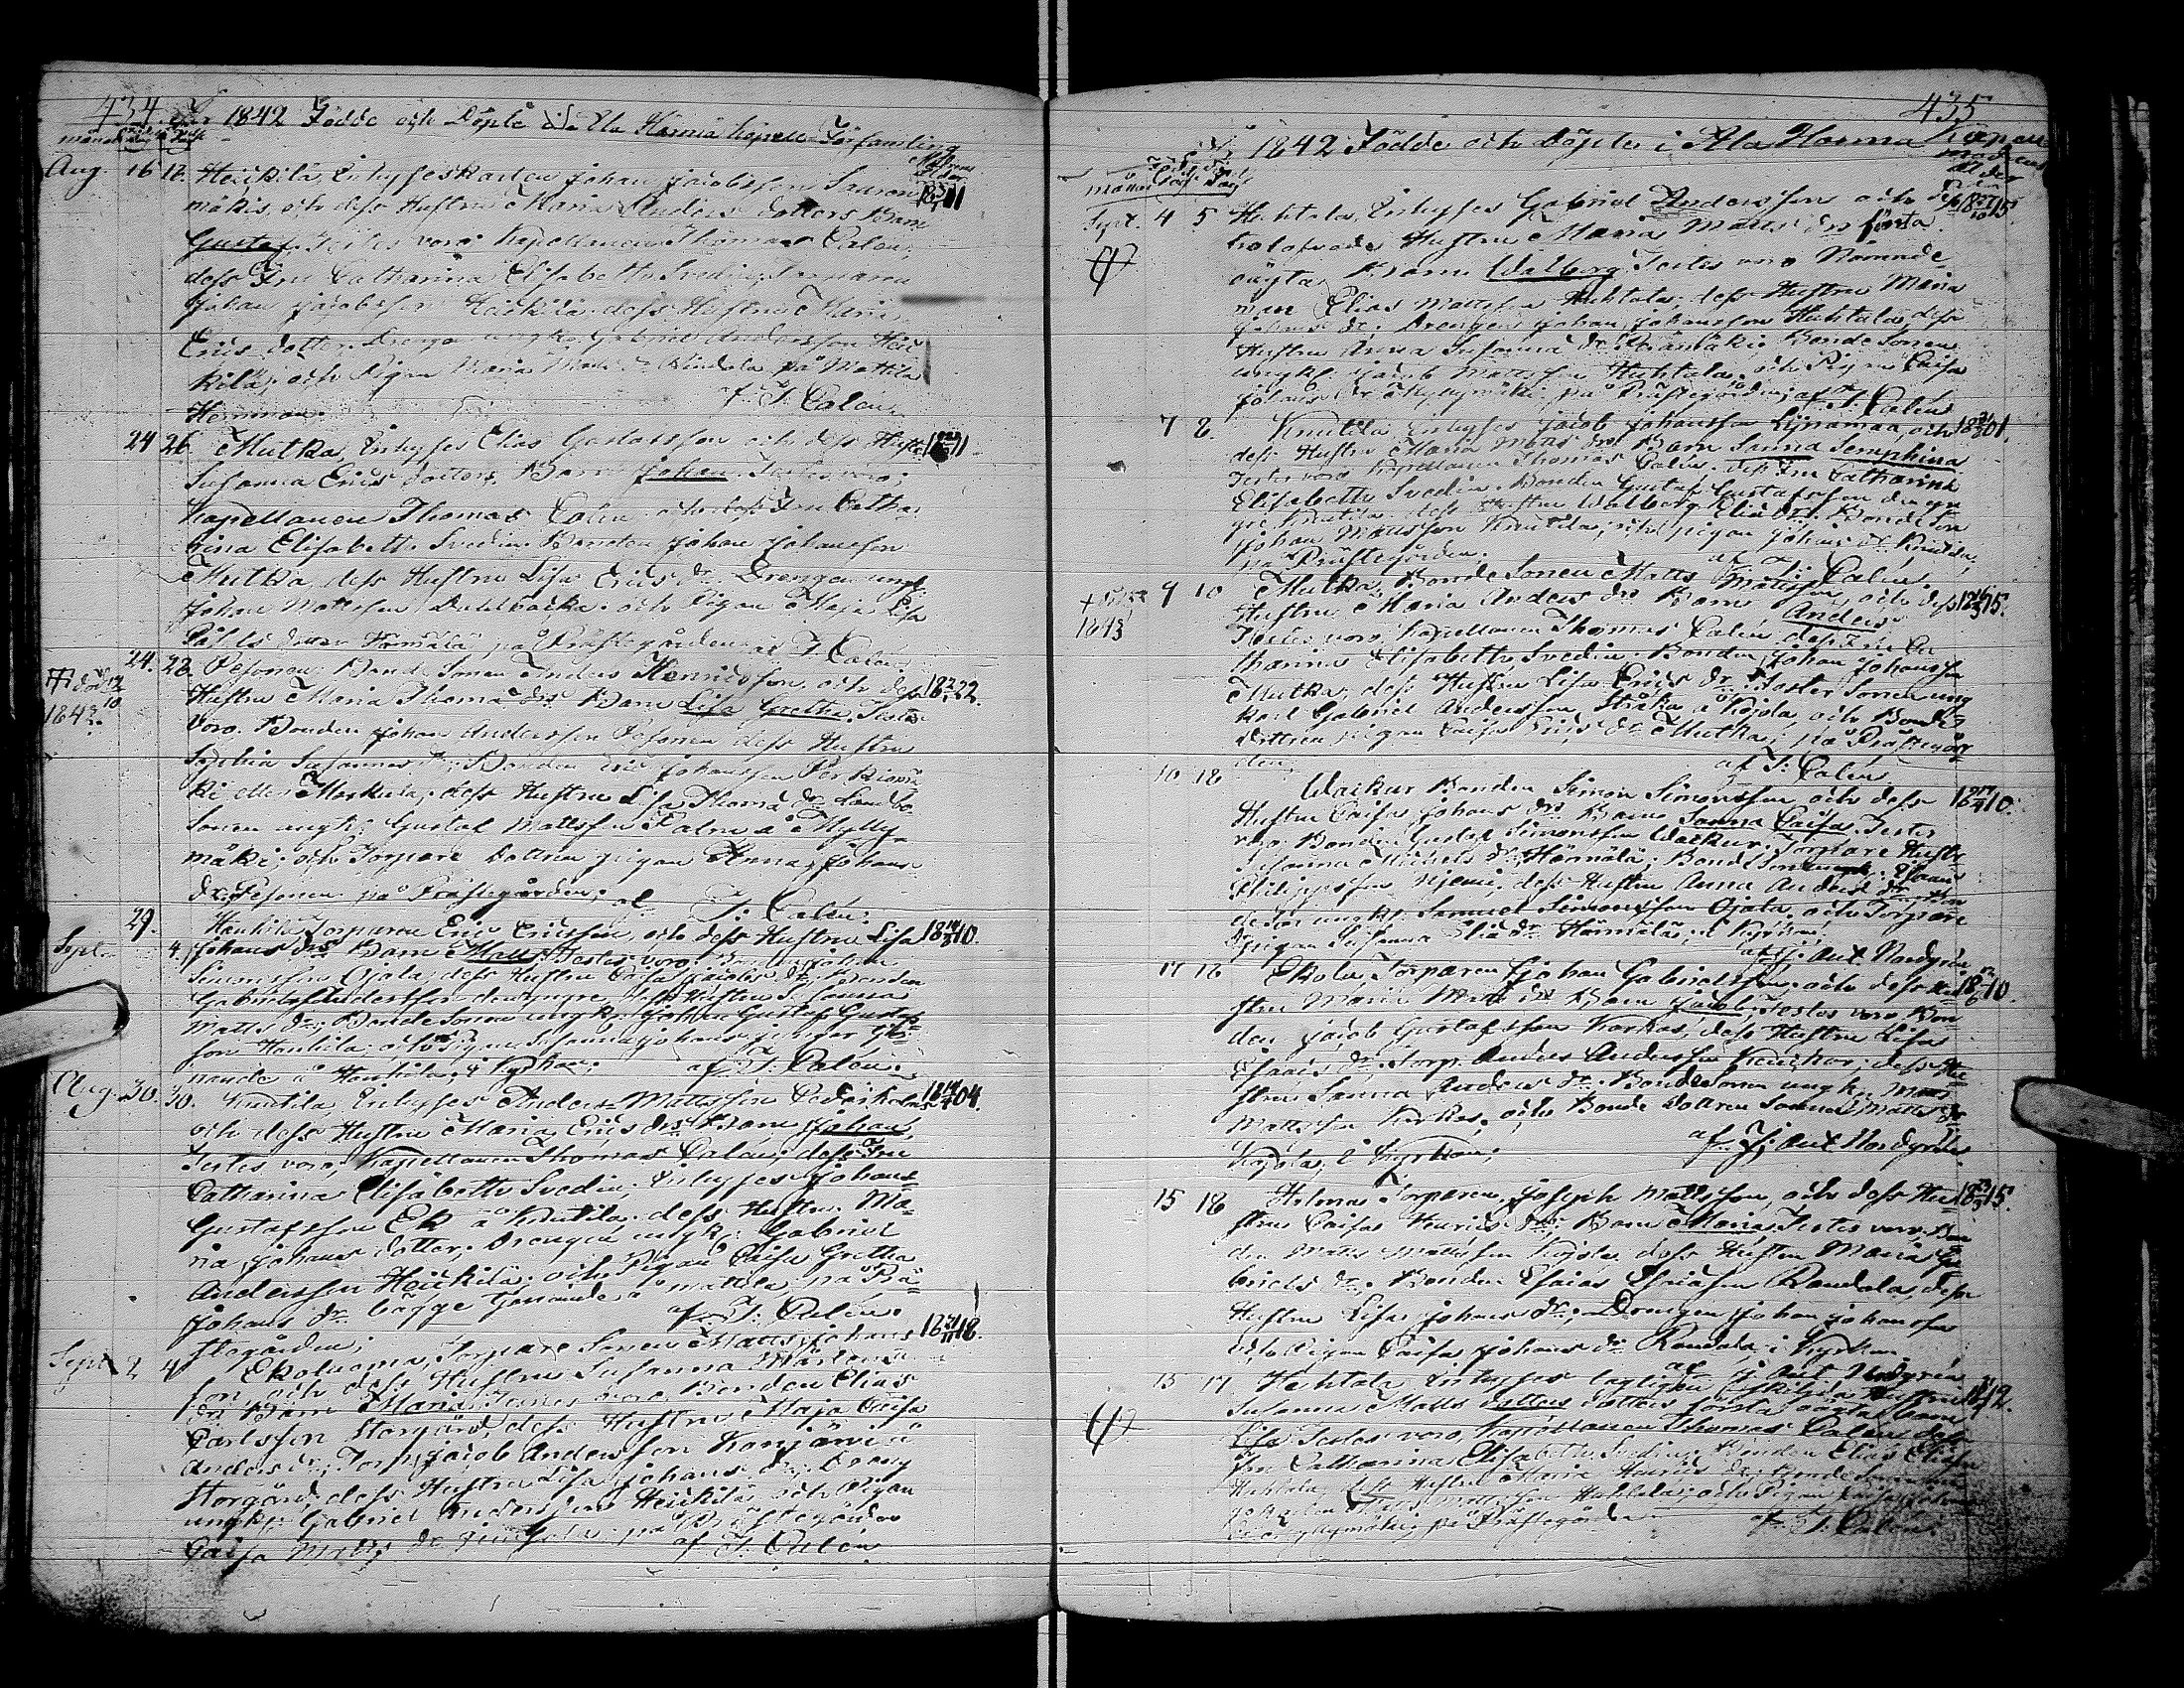 434. År 1842 Födde och Döpte i Ala Härmä Kapell Församling
månad Moderns ålder
Aug. 16 18. Heickilä, Inhyses Karlen Johan Jacobsson Saaren 18 11
mäkis, och dess Hustru Maria Anders dotters Barn
Gustaf. Testes voro Kapellanen Thomas Calén,
dess Fru Catharina Elisabeth Svedin, Torparen
Johan Jacobsson Heickilä, dess Hustru Maria
Erics dotter, Dreng ungk. Gabriel Andersson Heic
kilä; och Pigan Maria på Mattila
Hemman. af T. Calén.
24 26 Mutka, Inhyses Elias Gustafsson och dess Hustru 18 11
Susanna Erics dotters Barn Johan. Testes voro;
Kapellanen Thomas Calén och dess Fru Catha
rina Elisabeth Svedin. Bonden Johan Johansson
Mutka, dess Hustru Lisa Erics dr. Drengen ungk.
Johan Mattsson Dahlbacka och Pigan Maja Lisa
dotter Härmälä på Prästegården af T. Calén
24. 28. Pesonen Bonde Sonen Anders Henricsson och dess 18 22.
död 1843. Hustru Maria Thomæ drs Barn Lisa Gretha. Testes
voro. Bonden Johan Andersson Pesonen dess Hustru
Susanna dr. Bonden Eric Johansson Perkiömä
ki eller Markula, dess Hustru Lisa Thomæ dr. Landbo
Sonen ungk. Gustaf Mattsson Palm å Mylly
mäki; och Torpare Dottren pigan Anna Johans
dr. Pesonen på Prästegården; af T. Calén.
Sept 29. 4. Hankila Torparen Eric Ericsson, och dess Hustru Lisa 18 10.
Johans drs Barn Matts. Testes voro. Bonden Johan
Simonsson Ojala, dess Hustru Caisa Jacobs dr. Bonden
Gabriel Andersson den yngre, dess Hustru Susanna
Matts dr. Bonde Sonen ungk. Johan Gustaf Gustafs
son Hankila; och Pigan Susanna Johans tje
nande å Hankila, i Kyrkan; af T. Calén.
Aug. 30. 30. Knutila, Inhyses Anders Mattsson Cederholm 18 04.
och dess Hustru Maria Erics drs Barn Johan,
Testes voro, Kapellanen Thomas Calén, dess Fru
Catharina Elisabeth Svedin, Inhyses Johans
Gustafsson Ek å Knutila, dess Hustru Ma
ria Johans dotter, Drengen ungk. Gabriel
Andersson Heickilä och Pigan Caisa Gretha
Johans dr. bägge tjenande å Mattila på Prä
stegården; af T. Calén.
Sept 2 4 Ekoluoma, Torpare Sonen Matts Johans 18 18.
son och dess Hustru Susanna Mårtens
drs Barn Maria. Testes voro Bonden Elias
Carlsson Storgård, dess Hustru Maja Caisa
Anders dr. Torp. Jacob Andersson Kangäri å
Storgård, dess Hustru Lisa Johans dr. Dreng
ungk. Gabriel Andersson Heickilä och Pigan
Caisa Matts dr. på Prästegården
af T. Calén
435
År 1842 Födde och Döpte i Ala Härmä Kapell
månad Moderns ålder
Sept. 4 5 Huhtala, Inhyses Gabriel Andersson och dess 18 15
trolofvade Hustru Maria Matts drs första
oägta Barn Walborg. Testes voro Nämnde
man Elias Mattsson Huhtala, dess Hustru Maria
Johans dr. Drengen Johan Johansson Huhtala, dess
Hustru Anna Susanna dr. Bonde Sonen
ungk. Jacob Mattsson Huhtala och Pigan Caisa
Johans dr. Myllymäki på Prästegården; af T. Calén
7 8. Knutila Inhyses Jacob Johansson Lijnamaa, och 18 01.
dess Hustru Maria Matts drs Barn Sanna Seraphina
Testes voro Kapellanen Thomas Calén. dess Fru Catharina
Elisabeth Svedin. Bonden Gustaf Gustafsson den yn
gre Knutila dess Hustru Walborg Eliæ dr. Bonde Son
Johan Mattsson Knutila; och pigan Johans dr. Knutila,
på Prästegården. af T. Calén
1843 9 10 Mutka, Bonde Sonen Matts Mattsson, och dess 18 15.
Hustru Maria Anders drs Barn Anders
Testes voro, Kapellanen Thomas Calén dess Fru Ca
tharina Elisabeth Svedin. Bonden Johan Johansson
Mutka, dess Hustru Lisa Erics dr. Foster Sonen ung
karl Gabriel Andersson Stråka å Kojola, och Bonde
Dottren pigan Caisa Erics dr. Mutka; på Prästegår
den. af T. Calén
10 18 Waikur Bonden Simon Simonsson och dess 18 10.
Hustru Caisa Johans drs Barn Sanna Caisa. Testes
voro Bonden Gustaf Simonsson Waikur. Torpare Hustr
Susanna Michels dr. Härmälä; Bonde Sonen Elias
Philippsson Njemi, dess Hustru Anna Anders dr.
ungk. Samuel Simonsson Ojala och Torpare
pigan Susanna Eliæ dr. Härmälä; i Kyrkan;
af J. Ant. Nordgrén
17 18 Ekola Torparen Johan Gabrielsson, och dess Hu 18 10.
stru Maria Matts drs Barn Jacob. Testes voro, Bon
den Jacob Gustafsson Karkas, dess Hustru Lisa
Esaiæ dr. Torp. Anders Andersson Knuckar, dess Hu
stru Sanna Anders dr. Bonde Sonen ungk. Matts
Mattsson Karkas, och Bonde Dottren Sanna Matts dr
Kojola, i Kyrkan; af J. Ant. Nordgrén.
15 18 Holma Torparen, Joseph Mattsson, och dess Hu 18 15.
stru Caisa Henrics drs Barn Maria. Testes voro, Bon
den Matts Mattsson Kojola dess Hustru Maria Ga
briels dr. Bonden Esaias Esaiasson Randala, dess
Hustru Lisa Johans dr. Drengen Johan Johansson
och Pigan Caisa Johans dr. Randala, i Kyrkan
af J. Ant. Nordgrén
15 17 Huhtala Inhyses lagligen skilda Hustrun 18 12.
Susanna Matts dotters dotters första oägta Barn
Lisa Testes voro, Kapellanen Thomas Calén dess
Fru Catharina Elisabeth Svedin. Bonden Elias Eliasson
Huhtala, dess Hustru Maria Henrics dr. Bonde Sonen
Mattsson Huhtala; och Pigan Caisa Johans
dr. Myllymäki, på Prästegården. af T. Calén.